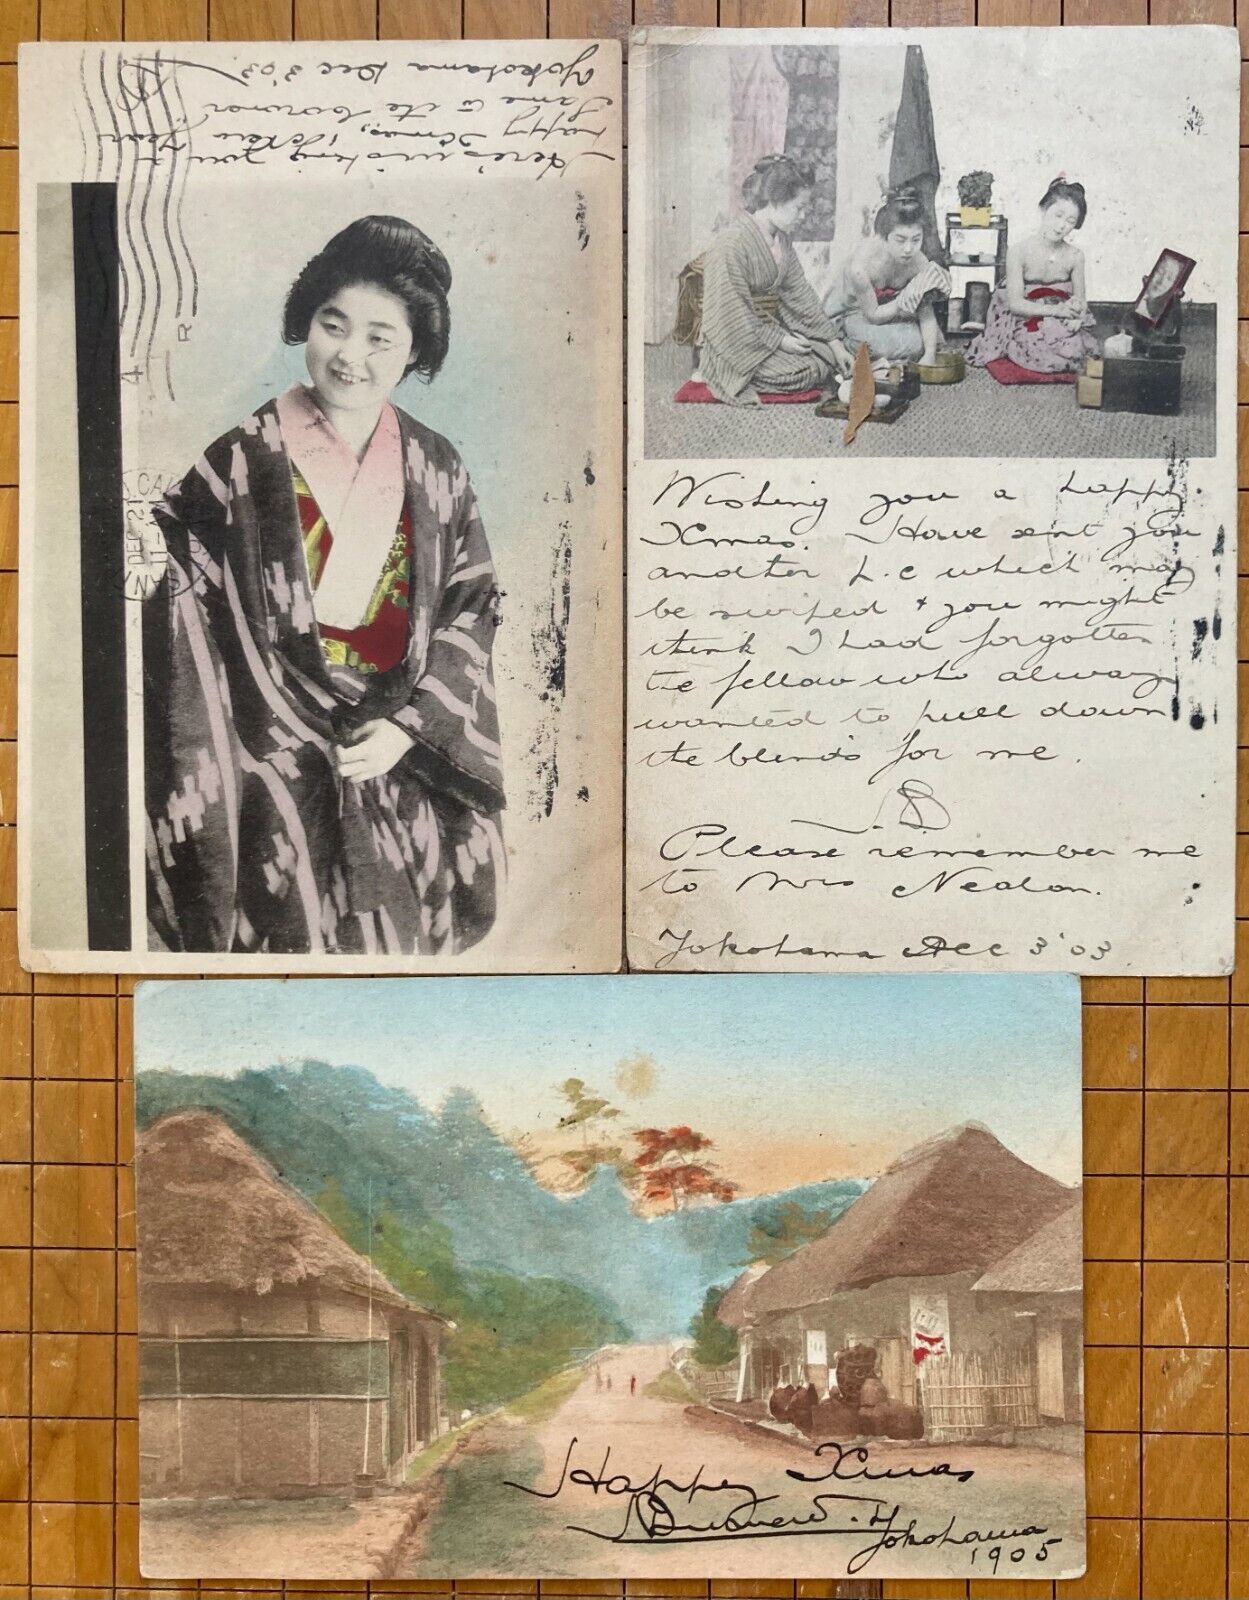 Here's wishing you a
happy Xmas, & New Year
same to the Governor
Yokohama Dec 3 '03.
R
4
CAL
DEC 21
11-AM
Wishing you a happy
Xmas. Have sent you
another p.c which may
be swiped & you might
think I had forgotten
the fellow who always
wanted to pull down
the blinds for me.
Please remember me
to Mrs Nealon.
Yokohama Dec 3 '03
Happy Xmas
Yokohama
1905